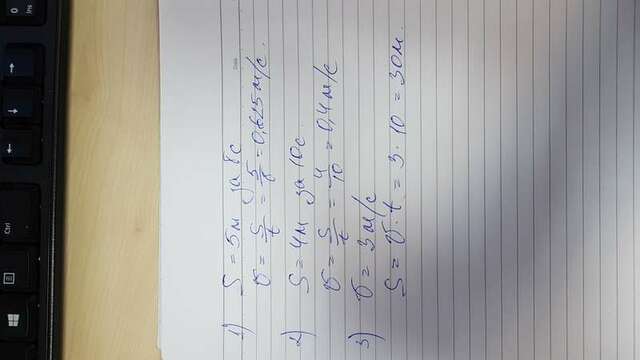 Ctrl
←
↓
→
0
Ins
1) S = 5м за 8с
Date
υ = S/t = 5/8 = 0,625 м/с.
2) S = 4м за 10с
υ = S/t = 4/10 = 0,4 м/с
3) υ = 3 м/с
S = υ · t = 3 · 10 = 30м.